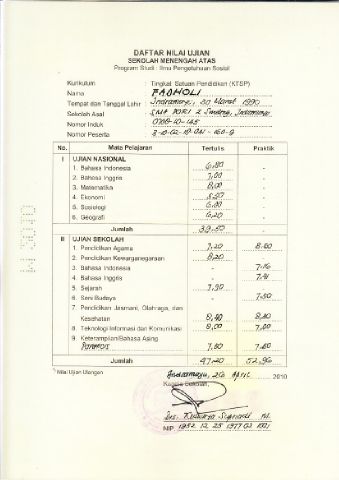 DAFTAR NILAI UJIAN
SEKOLAH MENENGAH ATAS
Program Studi : Ilmu Pengetahuan Sosial
Kurikulum : Tingkat Satuan Pendidikan (KTSP)
Nama : FADHOLI
Tempat dan Tanggal Lahir : Indramayu, 20 Maret 1990
Sekolah Asal : SMA PGRI 2 Sindang, Indramayu
Nomor Induk :
Nomor Peserta :
No. Mata Pelajaran Tertulis Praktik
I UJIAN NASIONAL
1. Bahasa Indonesia 6,80 -
2. Bahasa Inggris 7,00 -
3. Matematika 8,00 -
4. Ekonomi -
5. Sosiologi 6,00 -
6. Geografi 6,20 -
Jumlah 39,50 -
II UJIAN SEKOLAH
1. Pendidikan Agama 7,20 8,00
2. Pendidikan Kewarganegaraan 8,20 -
3. Bahasa Indonesia - 7,16
4. Bahasa Inggris -
5. Sejarah 7,90 -
6. Seni Budaya - 7,50
7. Pendidikan Jasmani, Olahraga, dan
Kesehatan 8,40 8,20
8. Teknologi Informasi dan Komunikasi 8,00 7,00
9. Keterampilan/Bahasa Asing
7,50 7,60
Jumlah 47,20 52,96
Nilai Ujian
Indramayu, 26 April 2010
Kepala Sekolah,
Drs.
NIP 1952 12 25 1977 03 1001